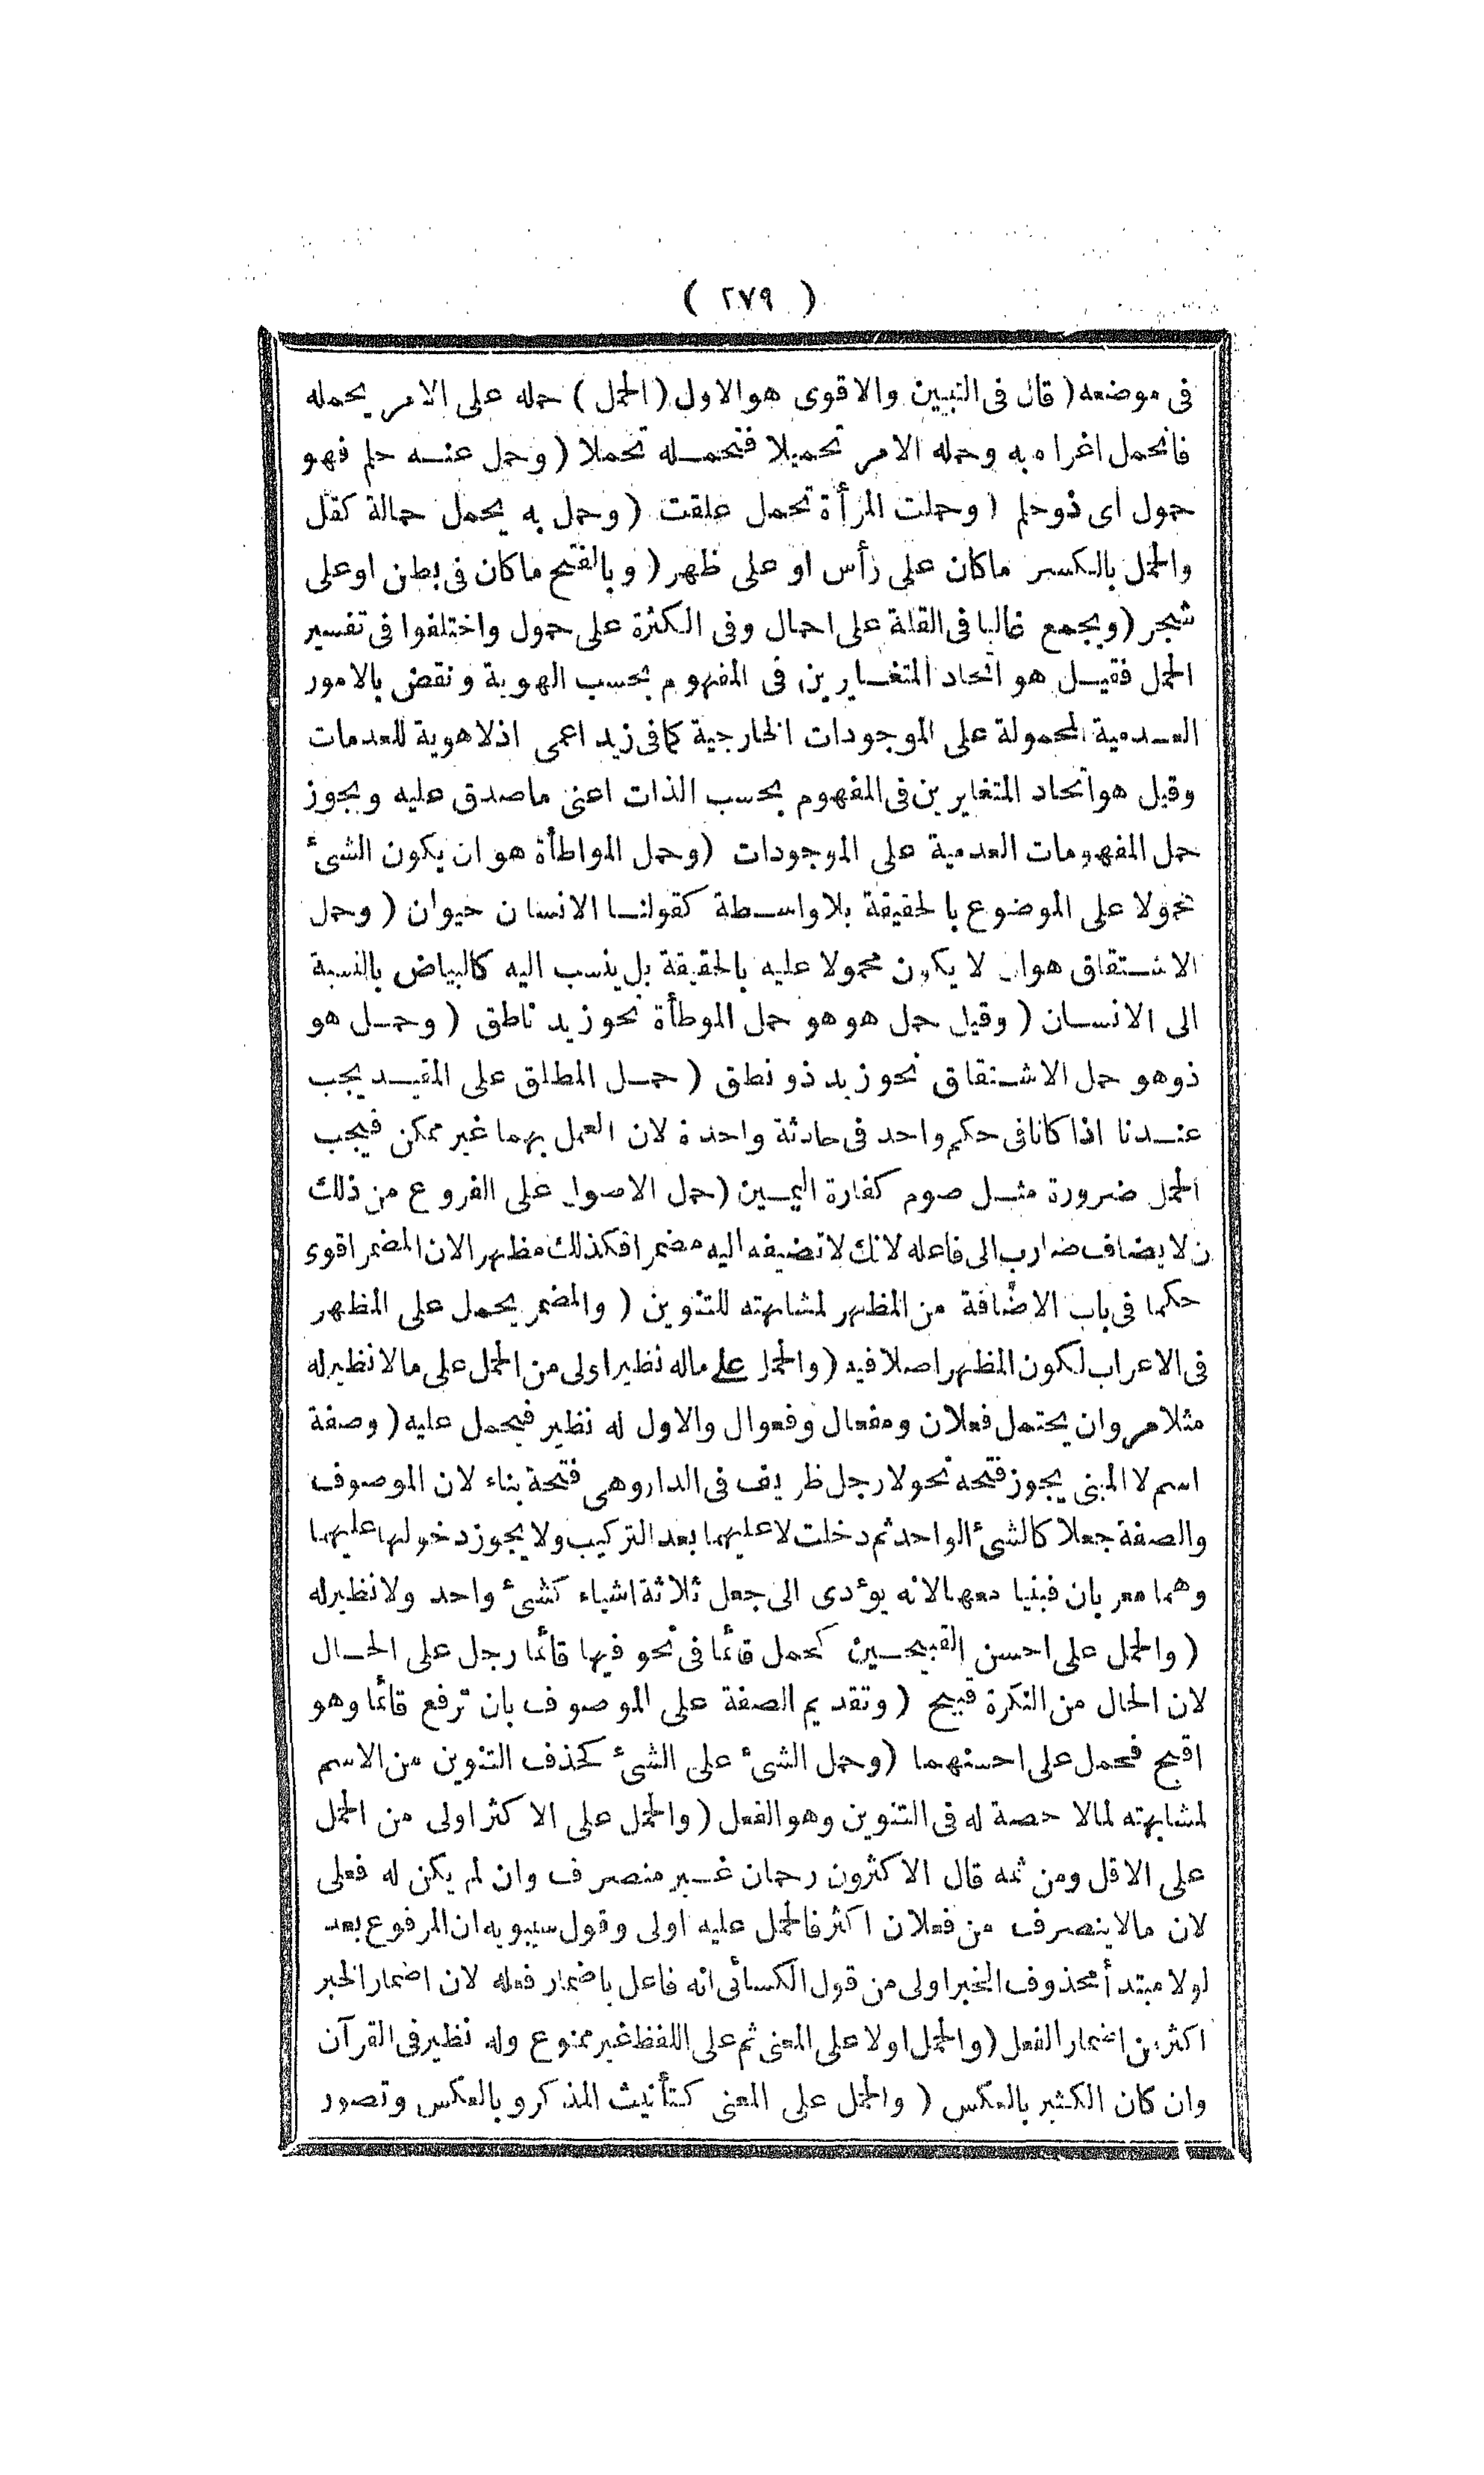 ( ٢٧٩ )
فى موضعه ( قال فى التبيين والاقوى هو الاول ( الحمل ) حمله على الامر يحمله
فانحمل اغراه به وحمله الامر تحميلا فتحمله تحملا ( وحمل عنه حلم فهو
حمول اى ذو حلم ( وحملت المرأة تحمل علقت ( وحمل به يحمل حمالة كفل
والحمل بالكسر ماكان على رأس او على ظهر ( وبالفتح ماكان فى بطن او على
شجر ( ويجمع غالبا فى القلة على احمال وفى الكثرة على حمول واختلفوا فى تفسير
الحمل فقيل هو اتحاد المتغايرين فى المفهوم بحسب الهوية ونقض بالامور
العدمية المحمولة على الموجودات الخارجية كما فى زيد اعمى اذلا هوية للعدمات
وقيل هو اتحاد المتغايرين فى المفهوم بحسب الذات اعنى ماصدق عليه ويجوز
حمل المفهومات العدمية على الموجودات ( وحمل المواطأة هو ان يكون الشىء
محمولا على الموضوع بالحقيقة بلا واسطة كقولنا الانسان حيوان ( وحمل
الاشتقاق هوان لا يكون محمولا عليه بالحقيقة بل ينسب اليه كالبياض بالنسبة
الى الانسان ( وقيل حمل هو هو حمل الموطأة نحو زيد ناطق ( وحمل هو
ذو هو حمل الاشتقاق نحو زيد ذو نطق ( حمل المطلق على المقيد يجب
عندنا اذا كانا فى حكم واحد فى حادثة واحدة لان العمل بهما غير ممكن فيجب
الحمل ضرورة مثل صوم كفارة اليمين ( حمل الاصول على الفروع من ذلك
ن لا يضاف ضارب الى فاعله لانك لا تضيفه اليه مضمرا فكذلك مظهرا لان المضمر اقوى
حكما فى باب الاضافة من المظهر لمشابهته للتنوين ( والمضمر يحمل على المظهر
فى الاعراب لكون المظهر اصلا فيه ( والحمل على ماله نظير اولى من الحمل على مالا نظير له
مثلا مروان يحتمل فعلان ومفعال وفعوال والاول له نظير فيحمل عليه ( وصفة
اسم لا المبنى يجوز فتحه نحو لا رجل ظريف فى الدار وهى فتحة بناء لان الموصوف
والصفة جعلا كالشىء الواحد ثم دخلت لا عليهما بعد التركيب ولا يجوز دخولها عليهما
وهما معربان فبنيا معها لانه يؤدى الى جعل ثلاثة اشياء كشىء واحد ولا نظير له
( والحمل على احسن القبيحين كحمل قائما فى نحو فيها قائما رجل على الحال
لان الحال من النكرة قبيح ( وتقديم الصفة على الموصوف بان ترفع قائما وهو
اقبح فحمل على احسنهما ( وحمل الشىء على الشىء كحذف التنوين من الاسم
لمشابهته لمالا حصة له فى التنوين وهو الفعل ( والحمل على الاكثر اولى من الحمل
على الاقل ومن ثمه قال الاكثرون رحمان غير منصرف وان لم يكن له فعلى
لان مالا ينصرف من فعلان اكثر فالحمل عليه اولى وقول سيبويه ان المرفوع بعد
لولا مبتدأ محذوف الخبر اولى من قول الكسائى انه فاعل باضمار فعله لان اضمار الخبر
اكثر من اضمار الفعل ( والحمل اولا على المعنى ثم على اللفظ غير ممنوع وله نظير فى القرآن
وان كان الكثير بالعكس ( والحمل على المعنى كتأنيث المذكر وبالعكس وتصور